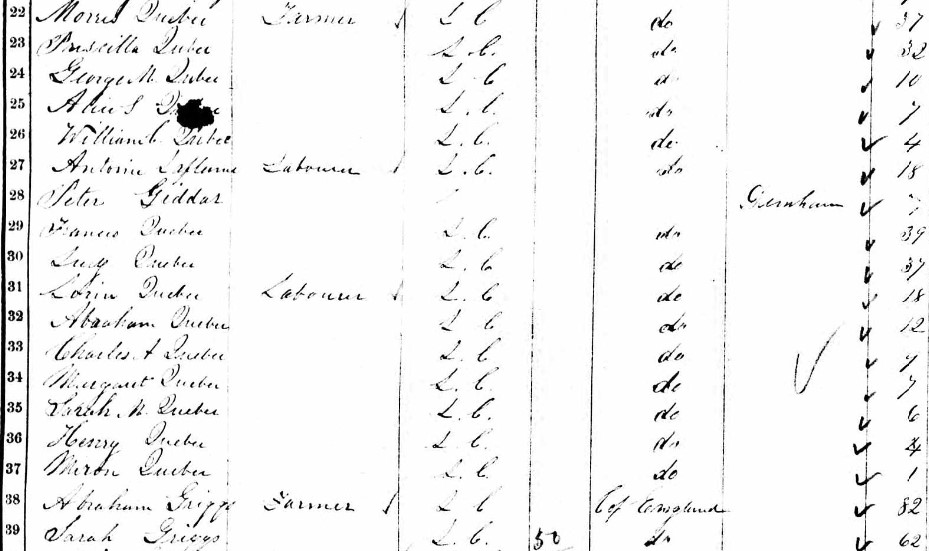 22 Morris Queber Farmer L C do 37
23 Priscilla Queber L C. do 32
24 George M. Queber L C do 10
25 L. C. do 7
26 William C. Queber L. C. do 4
27 Antoine Labourer L. C. do 18
28 Peter Giddar 7
29 Francis Queber L. C. do 39
30 Judy Queber L. C do 37
31 Loren Queber Labourer L. C do 18
32 Abraham Queber L C do 12
33 Charles A Queber L C do 9
34 Margaret Queber L. C. do 7
35 Sarah M. Queber L. C. do 6
36 Henry Queber L. C. do 4
37 Miron Queber L. C. do 1
38 Abraham Griggs Farmer L C C of England 82
39 Sarah Griggs L. C. 50 do 62